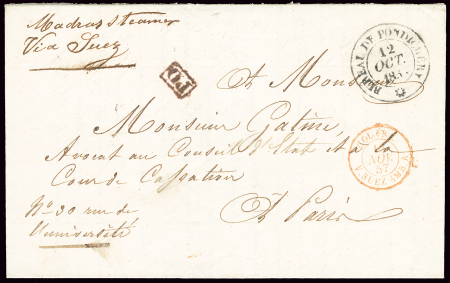 Madras steamer
Via Suez
BUREAU DE PONDICHERY
12
OCT.
185
PD
A Monsieur
Monsieur Patine,
Avocat au Conseil d'Etat et à la
Cour de Cassation
N° 30 rue de
l'université
A Paris
NOV.
57